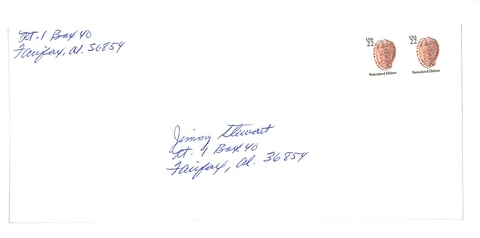 Rt. 1 Box 40
Fairfax, Al. 36854
USA
22
USA
22
Reticulated Helmet
Reticulated Helmet
Jimmy Stewart
Rt. 1 Box 40
Fairfax, Al. 36854